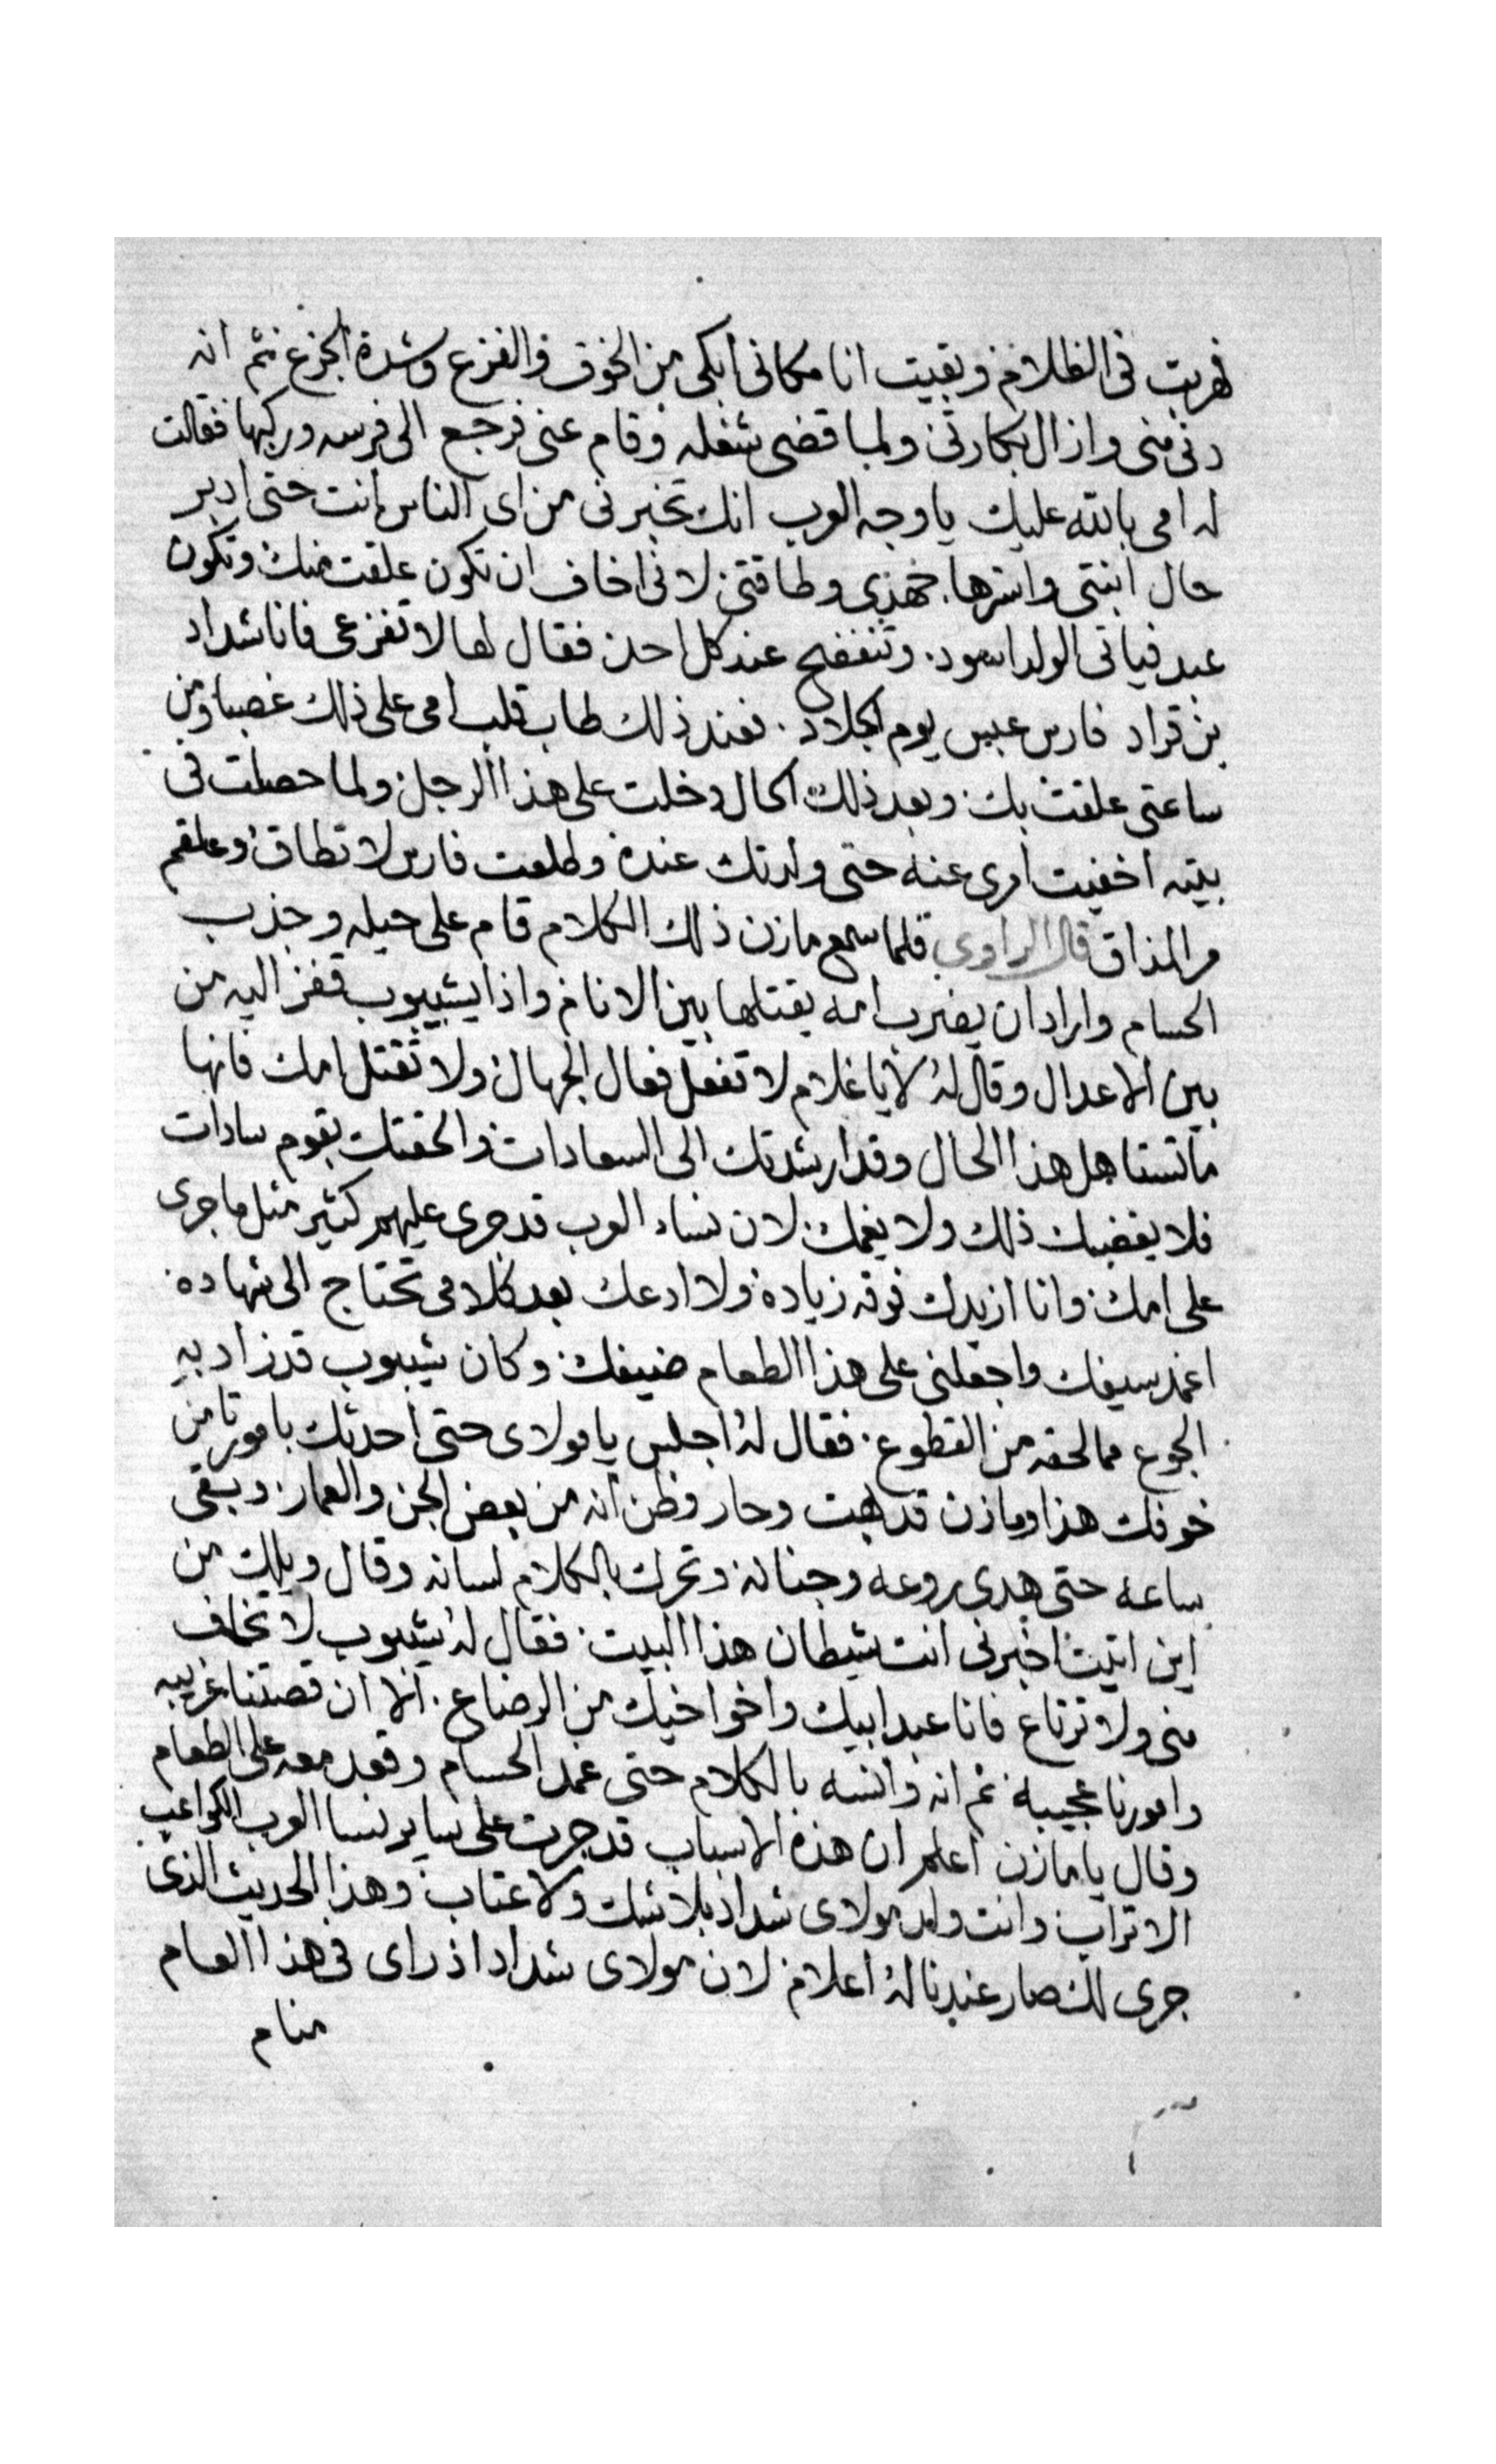 فهربت فى الظلام وبقيت انا مكانى ابكى من الخوف والفزع وشدة الجزع ثم انه
دنى منى وازال بكارتى ولما قضى شغله وقام عنى فرجع الى فرسه وركبها فقالت
له امى بالله عليك ياوجه العرب انك تخبرنى من اى الناس انت حتى ادبر
حال ابنتى واسترها بجهدى وطاقتى لانى اخاف ان تكون علقت منك وتكون
عبد فياتى الولد اسود وتنفضح عند كل احد فقال لها لا تفزعى فانا شداد
بن قراد فارس عبس يوم الجلاد فعند ذلك طاب قلب امى على ذلك غصبا ومن
ساعتى علقت بك وبعد ذلك الحال دخلت على هذا الرجل ولما حصلت فى
بيته اخفيت امرى عنه حتى ولدتك عنده وطلعت فارس لا تطاق وعلقم
مر المذاق قال الراوى فلما سمع مازن ذلك الكلام قام على حيله وجذب
الحسام واراد ان يضرب امه يقتلها بين الانام واذا بشيبوب قفز اليه من
بين الاعدال وقال له لا ياغلام لا تفعل فعال الجهال ولا تقتل امك فانها
ما تستاهل هذا الحال وقد ارشدتك الى السعادات والحقتك بقوم سادات
فلا يغضبك ذلك ولا يغمك لان نساء العرب قد جرى عليهم كثير مثل ما جرى
على امك وانا ازيدك فوقه زياده ولا ادعك بعد كلامى تحتاج الى شهاده
اغمد سيفك واجعلنى على هذا الطعام ضيفك وكان شيبوب قد زاد به
الجوع مما لحقه من القطوع فقال له اجلس يا مولاى حتى احدثك بامور تامن
خوفك هذا ومازن قد بهت وحار وظن انه من بعض الجن والعمار وبقى
ساعه حتى هدى روعه وجنانه وتحرك بالكلام لسانه وقال ويلك من
اين اتيت اخبرنى انت شيطان هذا البيت فقال له شيبوب لا تخاف
منى ولا ترتاع فانا عبد ابيك واخو اخيك من الرضاع الا ان قصتنا غريبه
وامورنا عجيبة ثم انه وانسه بالكلام حتى غمد الحسام وقعد معه على الطعام
وقال يا مازن اعلم ان هذه الاسباب قد جرت على ساير نسا العرب الكواعب
الاتراب وانت ولد مولاى شداد بلا شك ولا عتاب وهذا الحديث الذى
جرى لك صار عندنا له اعلام لان مولاى شداد اذ راى فى هذا العام
منام